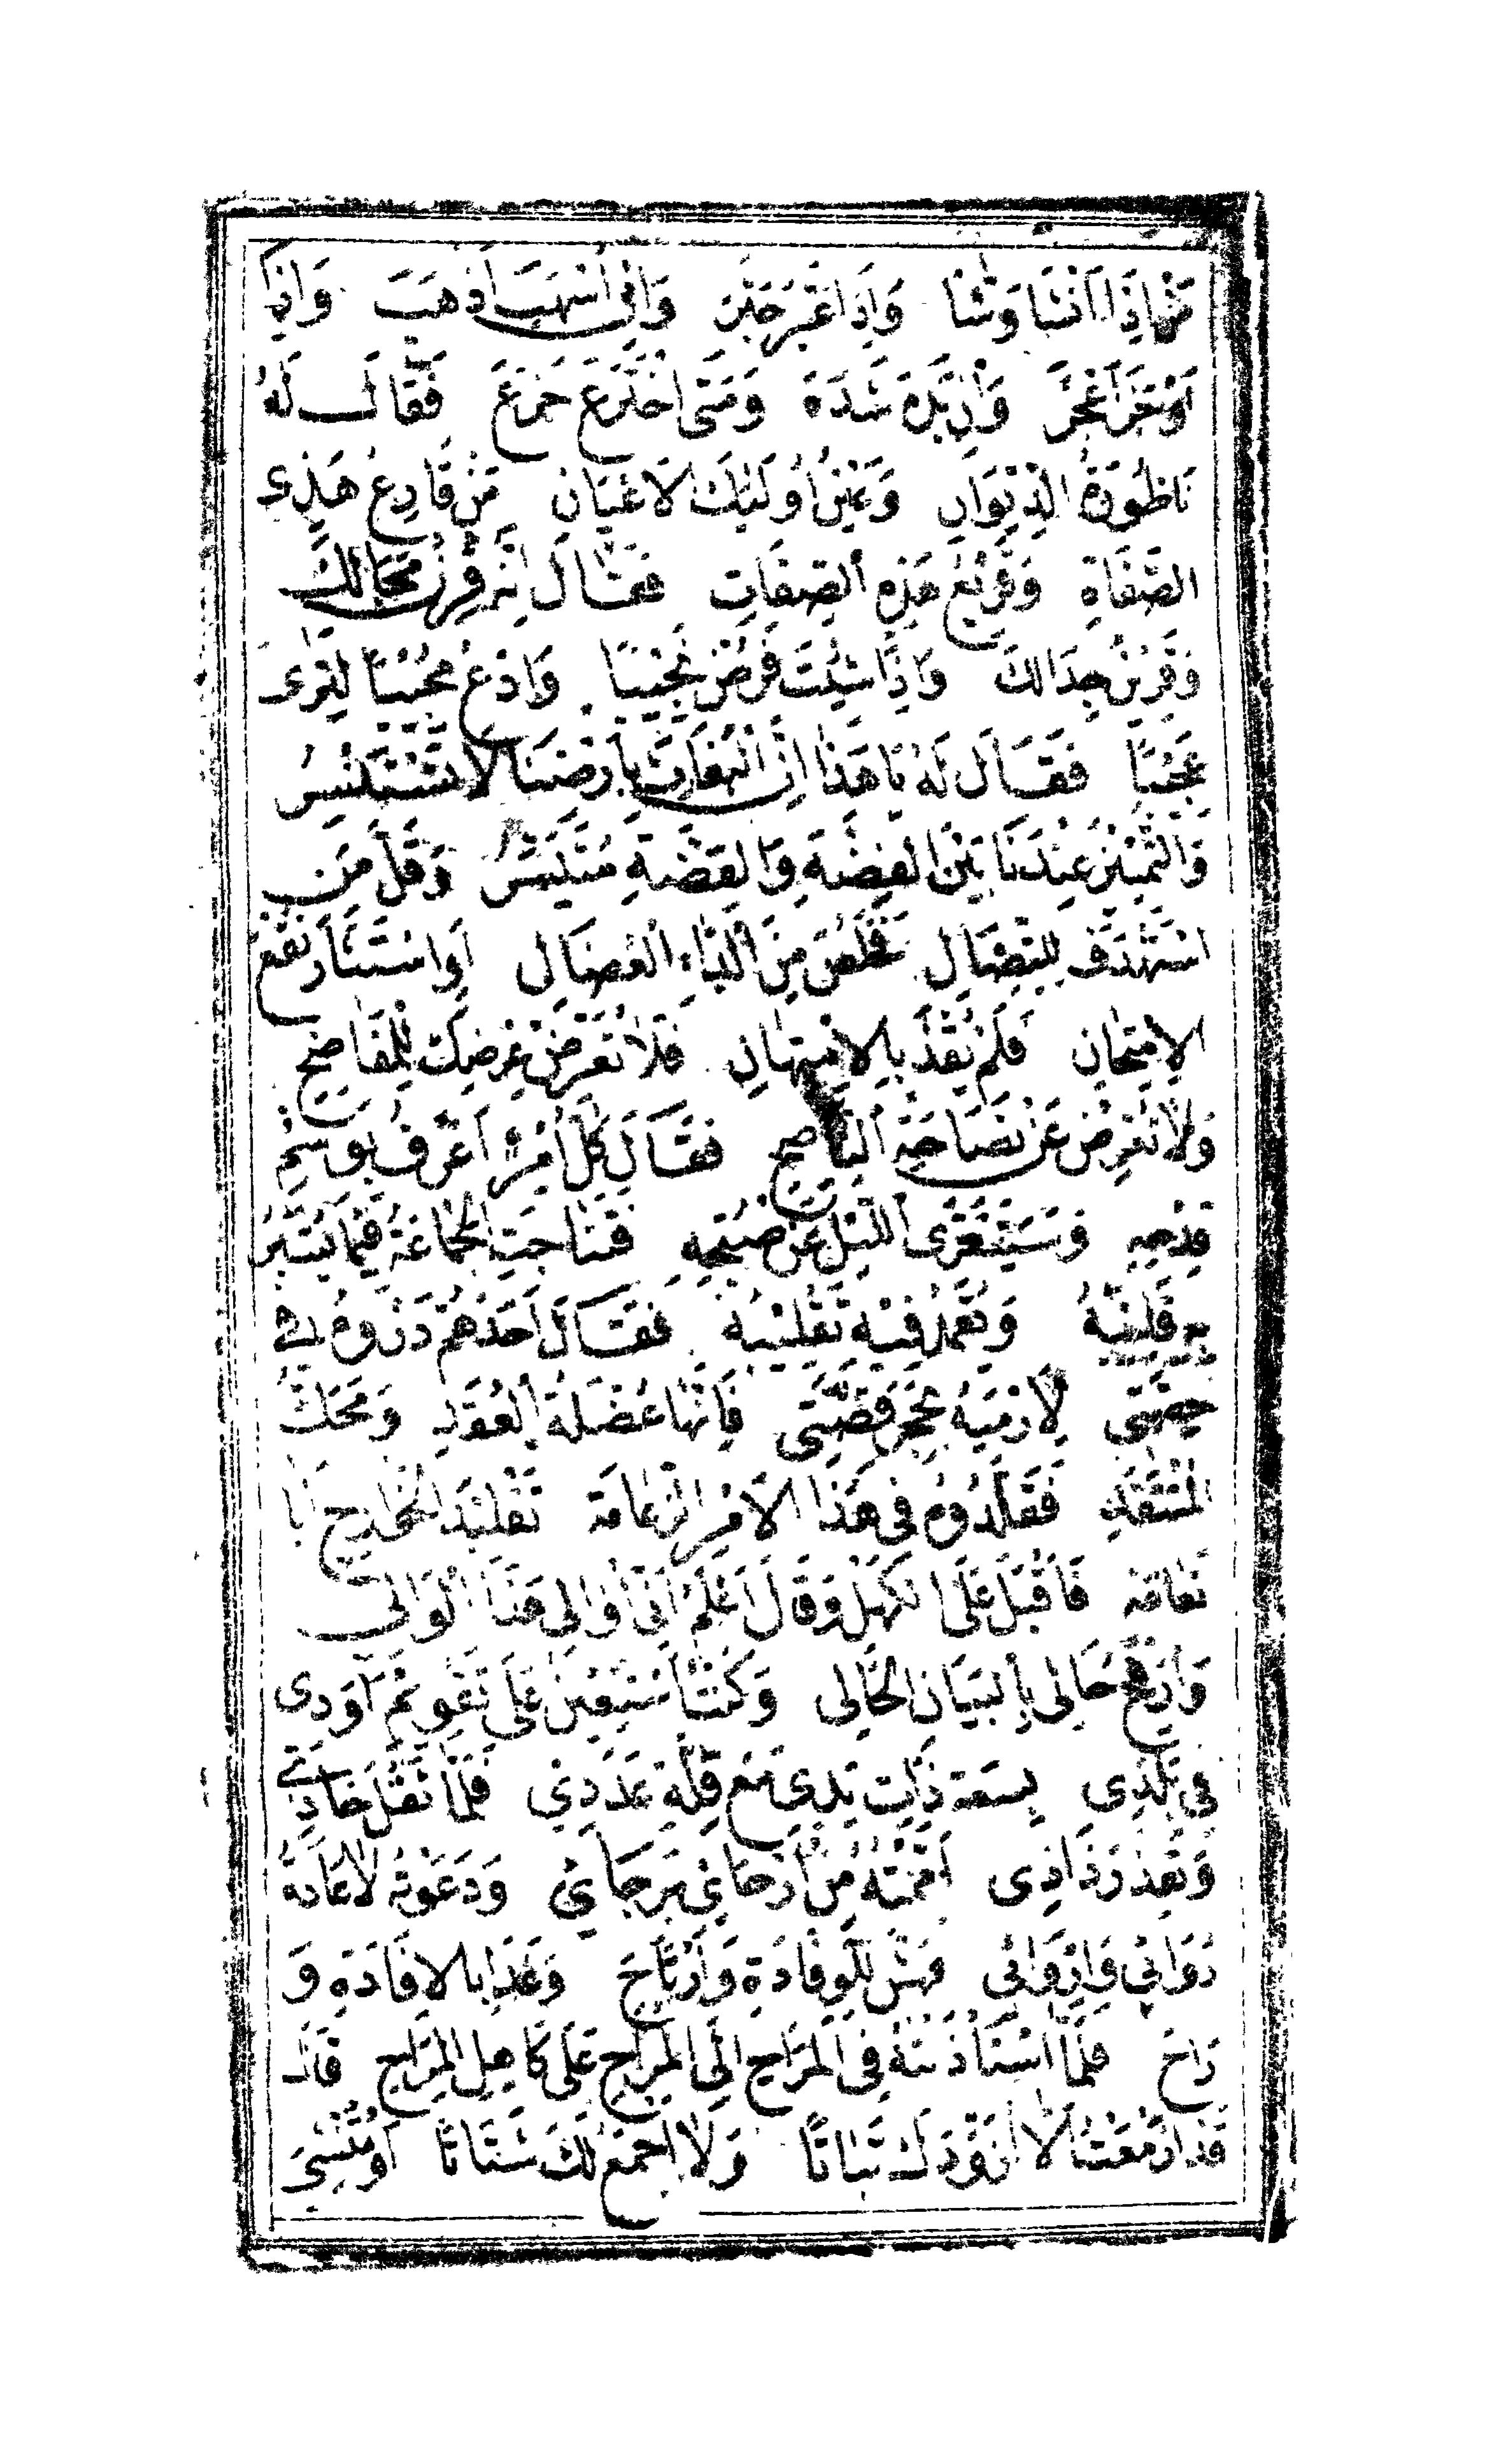 مَنْ اِذَا اَنْشَا وَشَّا وَاِذَا عَبَّرَ حَبَّرَ وَاِنْ اَسْهَبَ اَذْهَبَ وَاِذَا
اَوْجَزَ اَعْجَزَ وَاِنْ بَدَهَ شَدَهَ وَمَتَى اخْتَرَعَ خَرَعَ فَقَالَ لَهُ
نَاظُورَةُ الدِّيوَانِ وَعَيْنُ اُولَئِكَ الْاَعْيَانِ مَنْ قَارِعُ هَذِهِ
الصَّفَاةِ وَقَرِيعُ هَذِهِ الصِّفَاتِ فَقَالَ اِنَّهُ قِرْنُ مَجَالِكَ
وَقَرِينُ جِدَالِكَ وَاِذَا شِئْتَ فَرُضْ نَجِيبًا وَادْعُ مُجِيبًا لِتَرَى
عَجِيبًا فَقَالَ لَهُ يَا هَذَا اِنَّ الْبُغَاثَ بِاَرْضِنَا لَا يَسْتَنْسِرُ
وَالتَّمْيِيزُ عِنْدَنَا بَيْنَ الْفِضَّةِ وَالْقَضَّةِ مُتَيَسِّرٌ وَقَلَّ مَنِ
اسْتَهْدَفَ لِلنِّضَالِ فَخَلَصَ مِنَ الدَّاءِ الْعُضَالِ اَوِ اسْتَثَارَ نَقْعَ
الْاِمْتِحَانِ فَلَمْ يُقْذَ بِالْاِمْتِهَانِ فَلَا تُعَرِّضْ عِرْضَكَ لِلْمَفَاضِحِ
وَلَا تُعْرِضْ عَنْ نَصَاحَةِ النَّاصِحِ فَقَالَ كُلُّ امْرِئٍ اَعْرَفُ بِوَسْمِ
قِدْحِهِ وَسَيَتَفَرَّى اللَّيْلُ عَنْ صُبْحِهِ فَتَنَاجَتِ الْجَمَاعَةُ فِيمَا يُسْبَرُ
بِهِ قَلِيبُهُ وَيُعْمَدُ فِيهِ تَقْلِيبُهُ فَقَالَ اَحَدُهُمْ ذَرُوهُ فِي
حِصَّتِي لِاَرْمِيَهُ بِحَجَرِ قِصَّتِي فَاِنَّهَا عُضْلَةُ الْعُقَدِ وَمَحَكُّ
الْمُنْتَقَدِ فَقَلَّدُوهُ فِي هَذَا الْاَمْرِ الزَّعَامَةَ تَقْلِيدَ الْخَوَارِجِ اَبَا
نَعَامَةَ فَاَقْبَلَ عَلَى الْكَهْلِ وَقَالَ اعْلَمْ اَنِّي اُوَالِي هَذَا الْوَالِي
وَاُرَقِّحُ حَالِي بِالْبَيَانِ الْحَالِي وَكُنْتُ اَسْتَعِينُ عَلَى تَقْوِيمِ اَوَدِي
فِي بَلَدِي بِسَعَةِ ذَاتِ يَدِي مَعَ قِلَّةِ عَدَدِي فَلَمَّا ثَقُلَ حَاذِي
وَنَفِذَ رَذَاذِي اَمَّمْتُهُ مِنْ اَرْجَائِي بِرَجَائِي وَدَعَوْتُهُ لِاِعَادَةِ
رُوَائِي وَاِرْوَائِي فَهَشَّ لِلْوِفَادَةِ وَارْتَاحَ وَغَدَا بِالْاِفَادَةِ وَ
رَاحَ فَلَمَّا اسْتَاْذَنْتُهُ فِي الْمَرَاحِ اِلَى الْمُرَاحِ عَلَى كَاهِلِ الْمِرَاحِ قَالَ
قَدْ اَزْمَعْتُ اَلَّا اُزَوِّدَكَ بَتَاتًا وَلَا اَجْمَعَ لَكَ شَتَاتًا اَوْ تُنْشِئَ